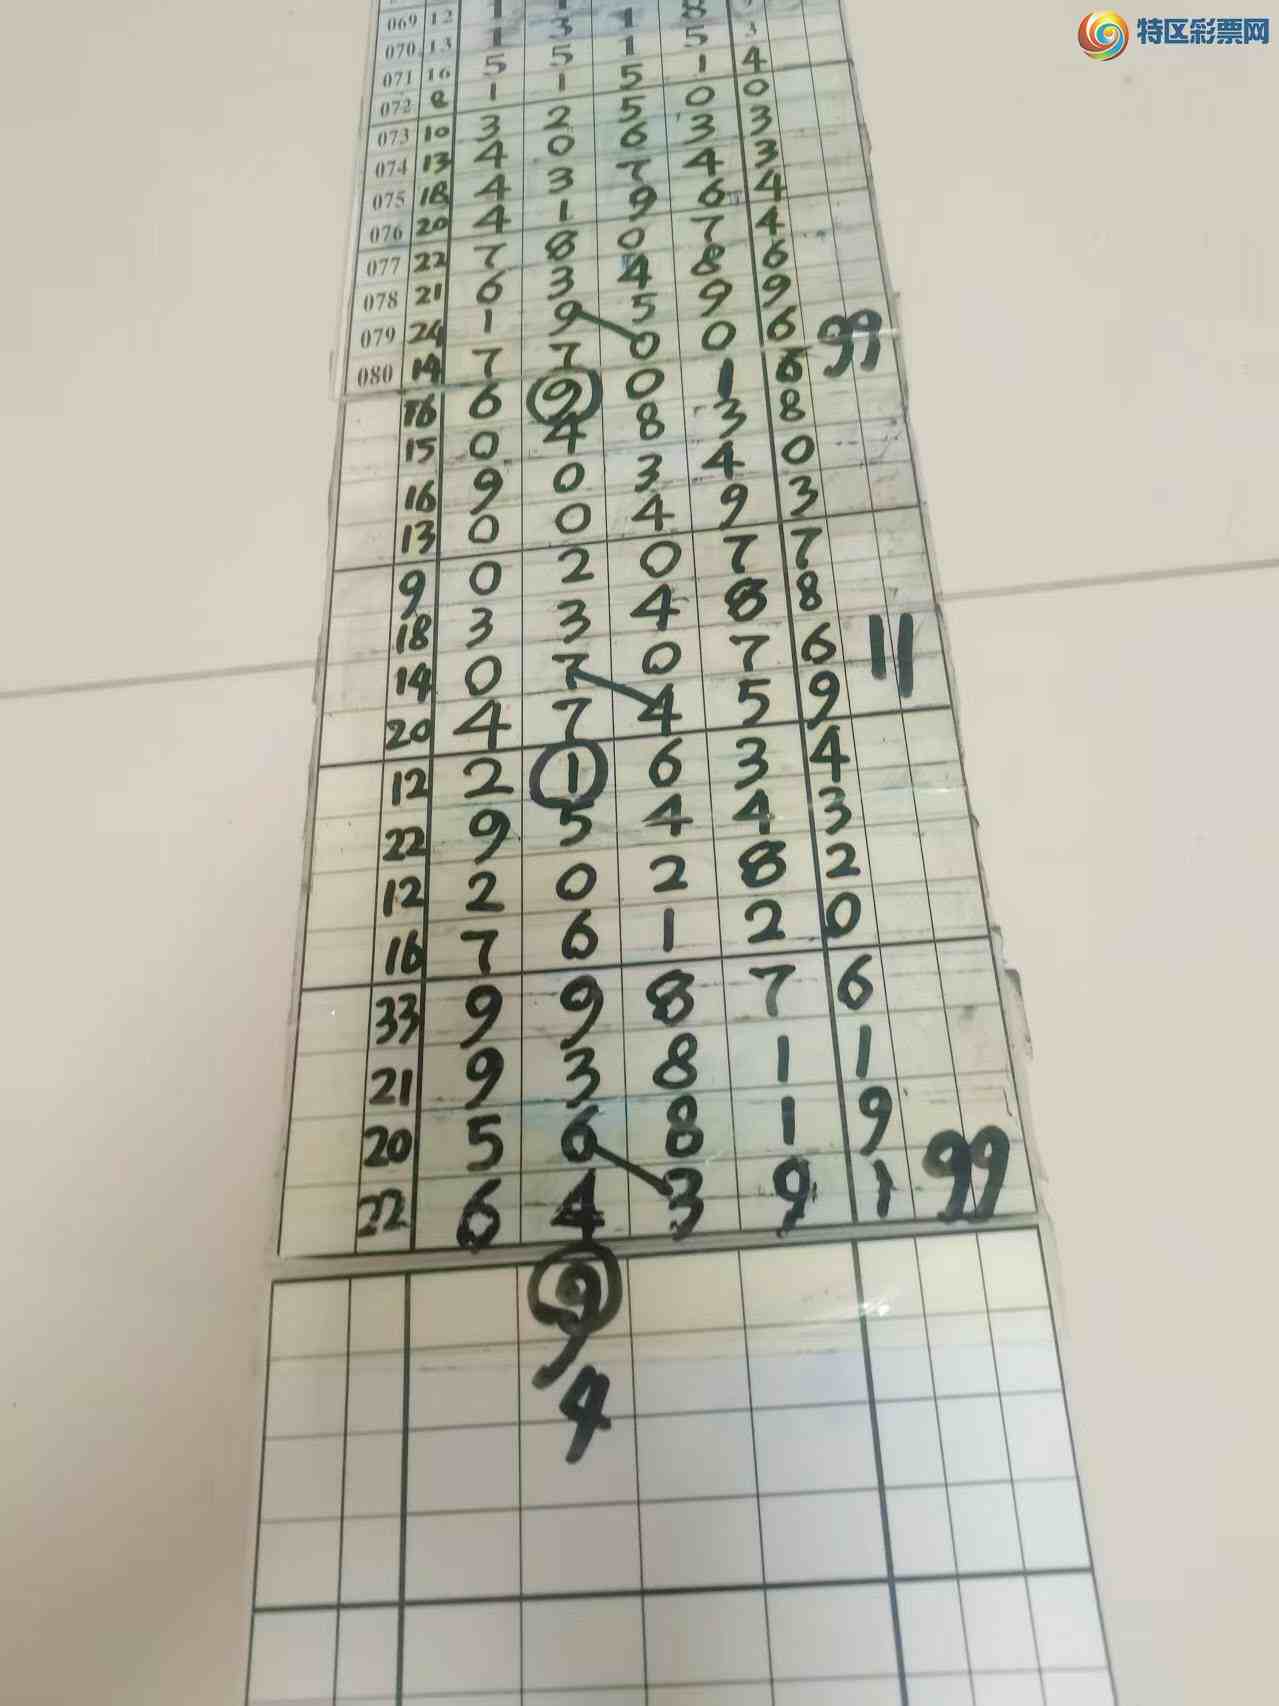 特区彩票网
069 12 1 3 1 8
070 13 1 5 1 5 3
071 16 5 1 5 1 4
072 8 1 2 5 0 0
073 10 3 0 6 3 3
074 13 4 3 7 4 3
075 18 4 1 9 6 4
076 20 4 8 0 7 4
077 22 7 3 4 8 6
078 21 6 9 5 9 9
079 24 1 7 0 0 6 99
080 14 7 9 0 1 6
16 6 4 8 3 8
15 0 0 3 4 0
16 9 0 4 9 3
13 0 2 0 7 7
9 0 3 4 8 8
18 3 7 0 7 6 11
14 0 7 4 5 9
20 4 1 6 3 4
12 2 5 4 4 3
22 9 0 2 8 2
12 2 6 1 2 0
16 7 9 8 7 6
33 9 3 8 1 1
21 9 6 8 1 9
20 5 4 3 9 1 99
22 6 9
4